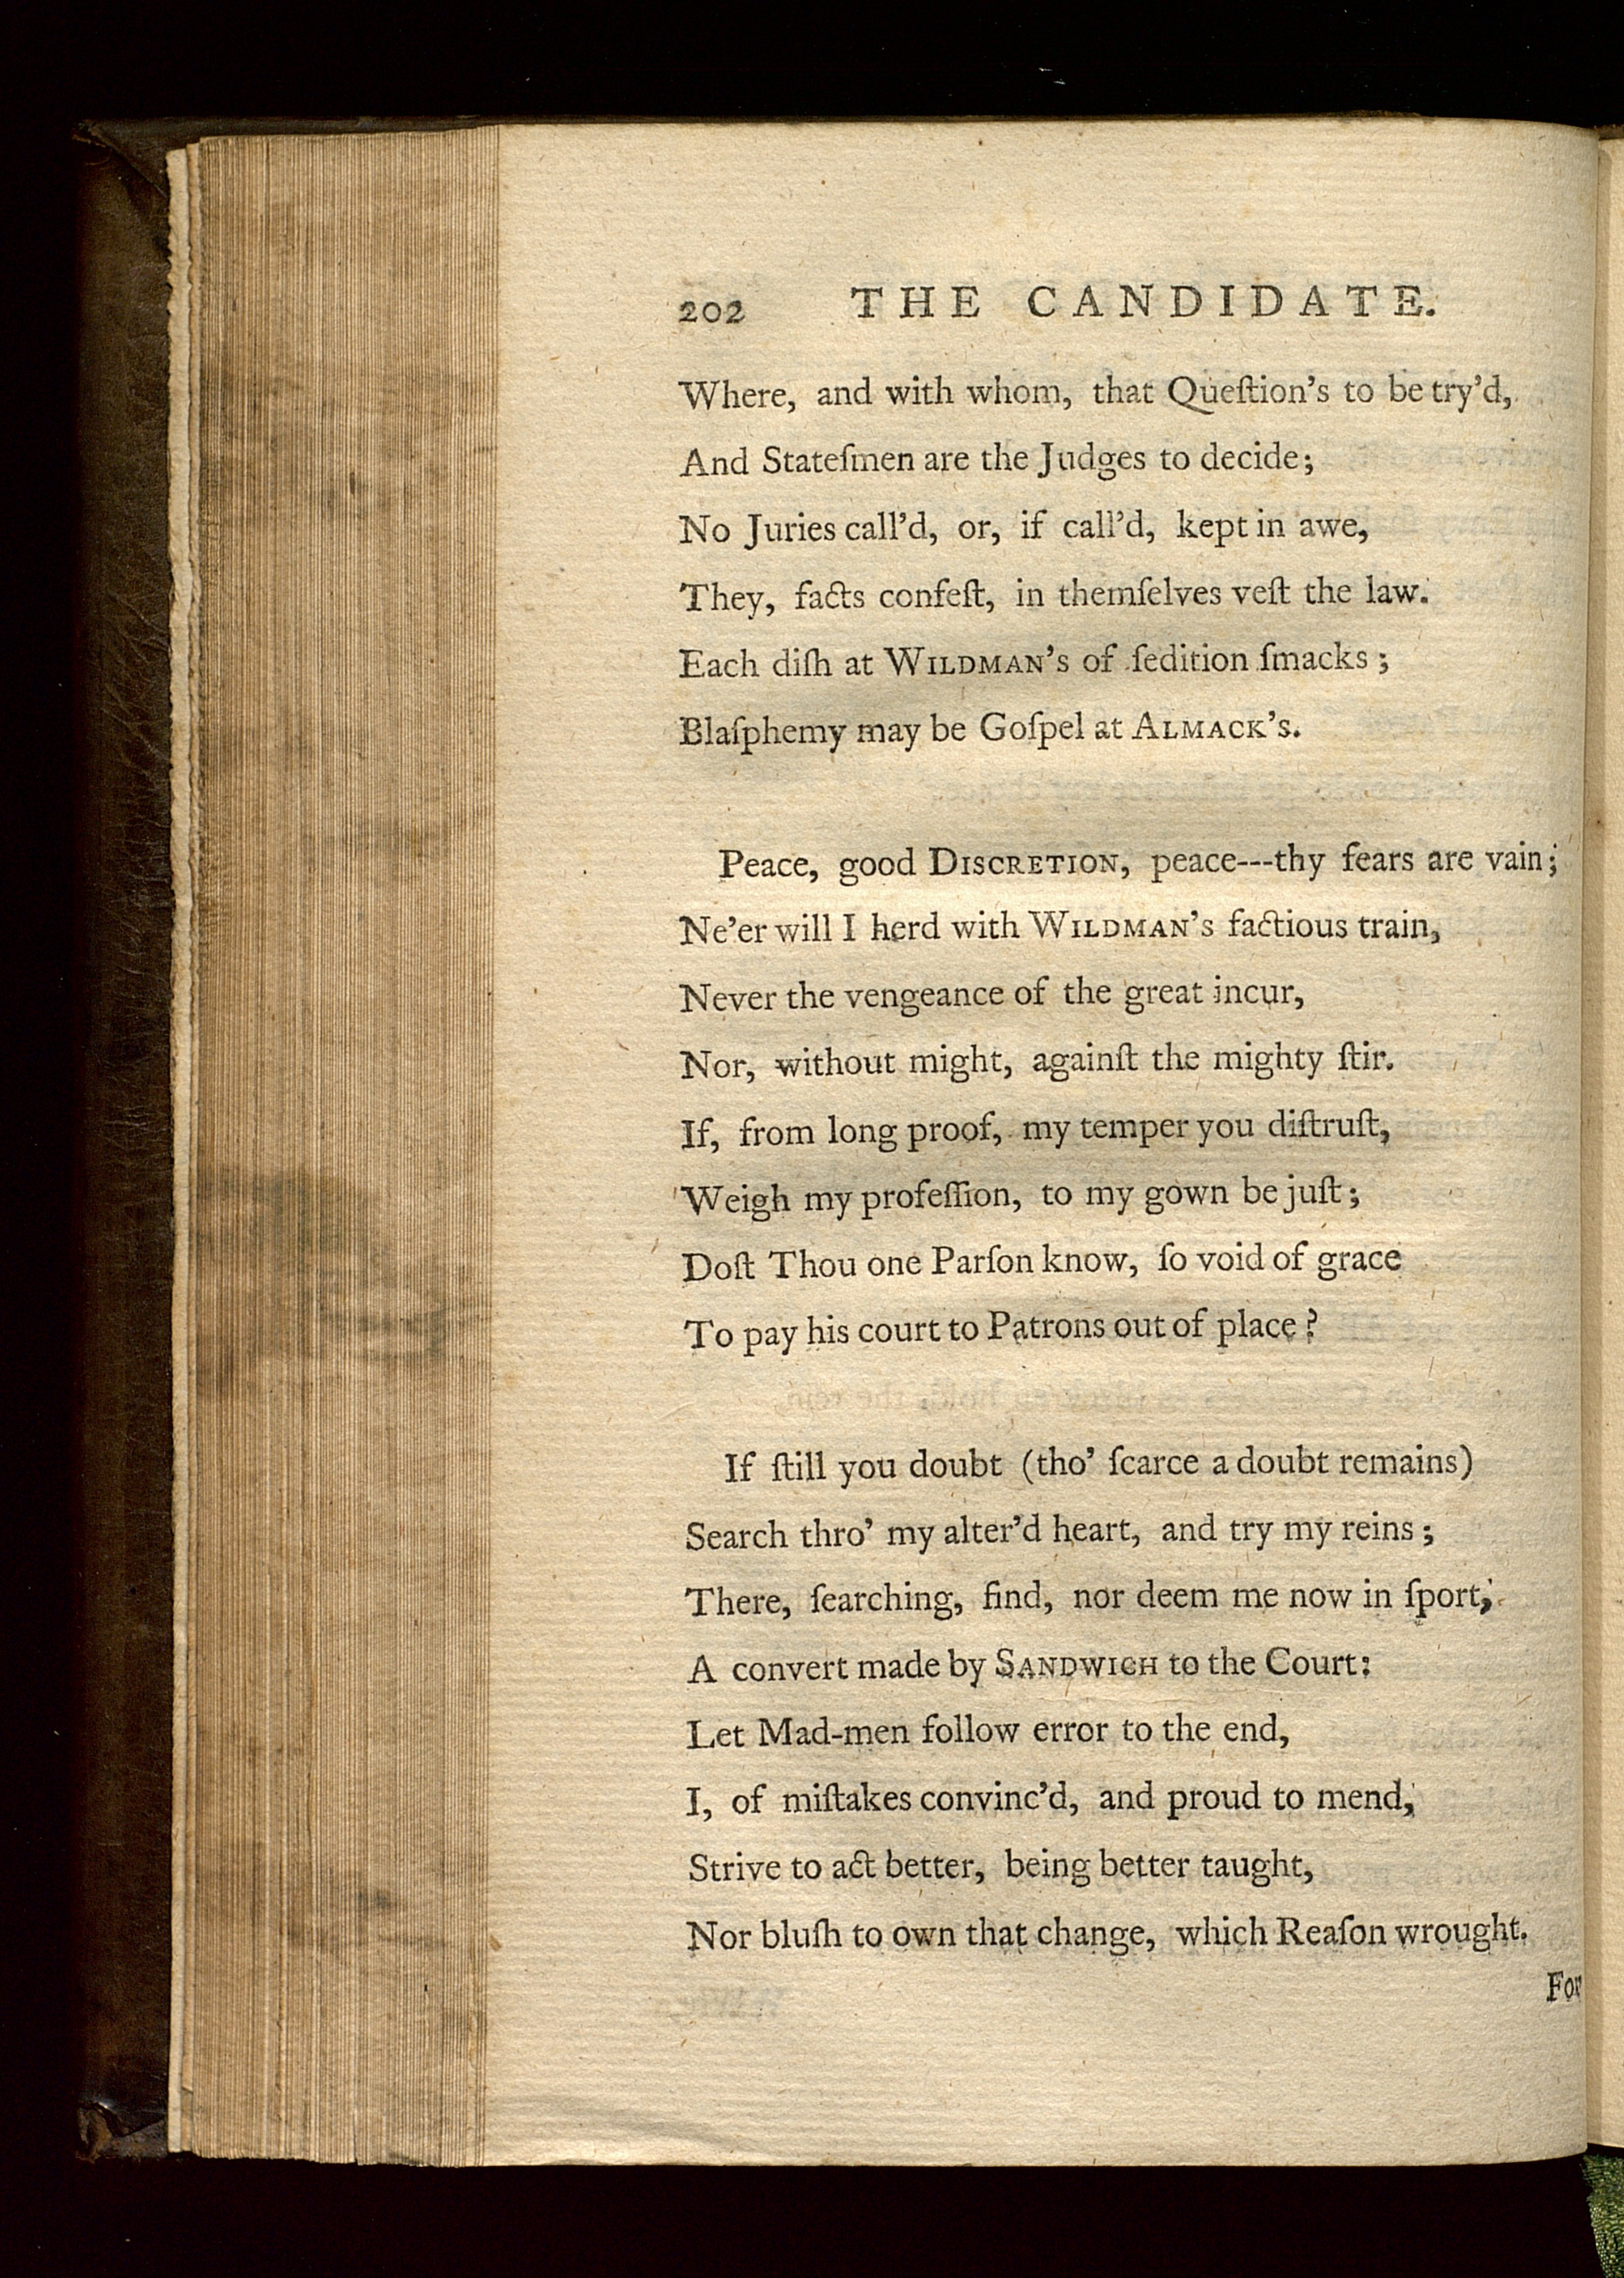 202 THE CANDIDATE.
Where, and with whom, that Queſtion's to be try'd,
And Stateſmen are the Judges to decide;
No Juries call'd, or, if call'd, kept in awe,
They, facts confeſt, in themſelves veſt the law.
Each diſh at WILDMAN'S of ſedition ſmacks;
Blaſphemy may be Goſpel at ALMACK'S.
Peace, good DISCRETION, peace---thy fears are vain;
Ne'er will I herd with WILDMAN'S factious train,
Never the vengeance of the great incur,
Nor, without might, againſt the mighty ſtir.
If, from long proof, my temper you diſtruſt,
Weigh my profeſſion, to my gown be juſt;
Doſt Thou one Parſon know, ſo void of grace
To pay his court to Patrons out of place?
If ſtill you doubt (tho' ſcarce a doubt remains)
Search thro' my alter'd heart, and try my reins;
There, ſearching, find, nor deem me now in ſport,
A convert made by SANDWICH to the Court:
Let Mad-men follow error to the end,
I, of miſtakes convinc'd, and proud to mend,
Strive to act better, being better taught,
Nor bluſh to own that change, which Reaſon wrought.
For